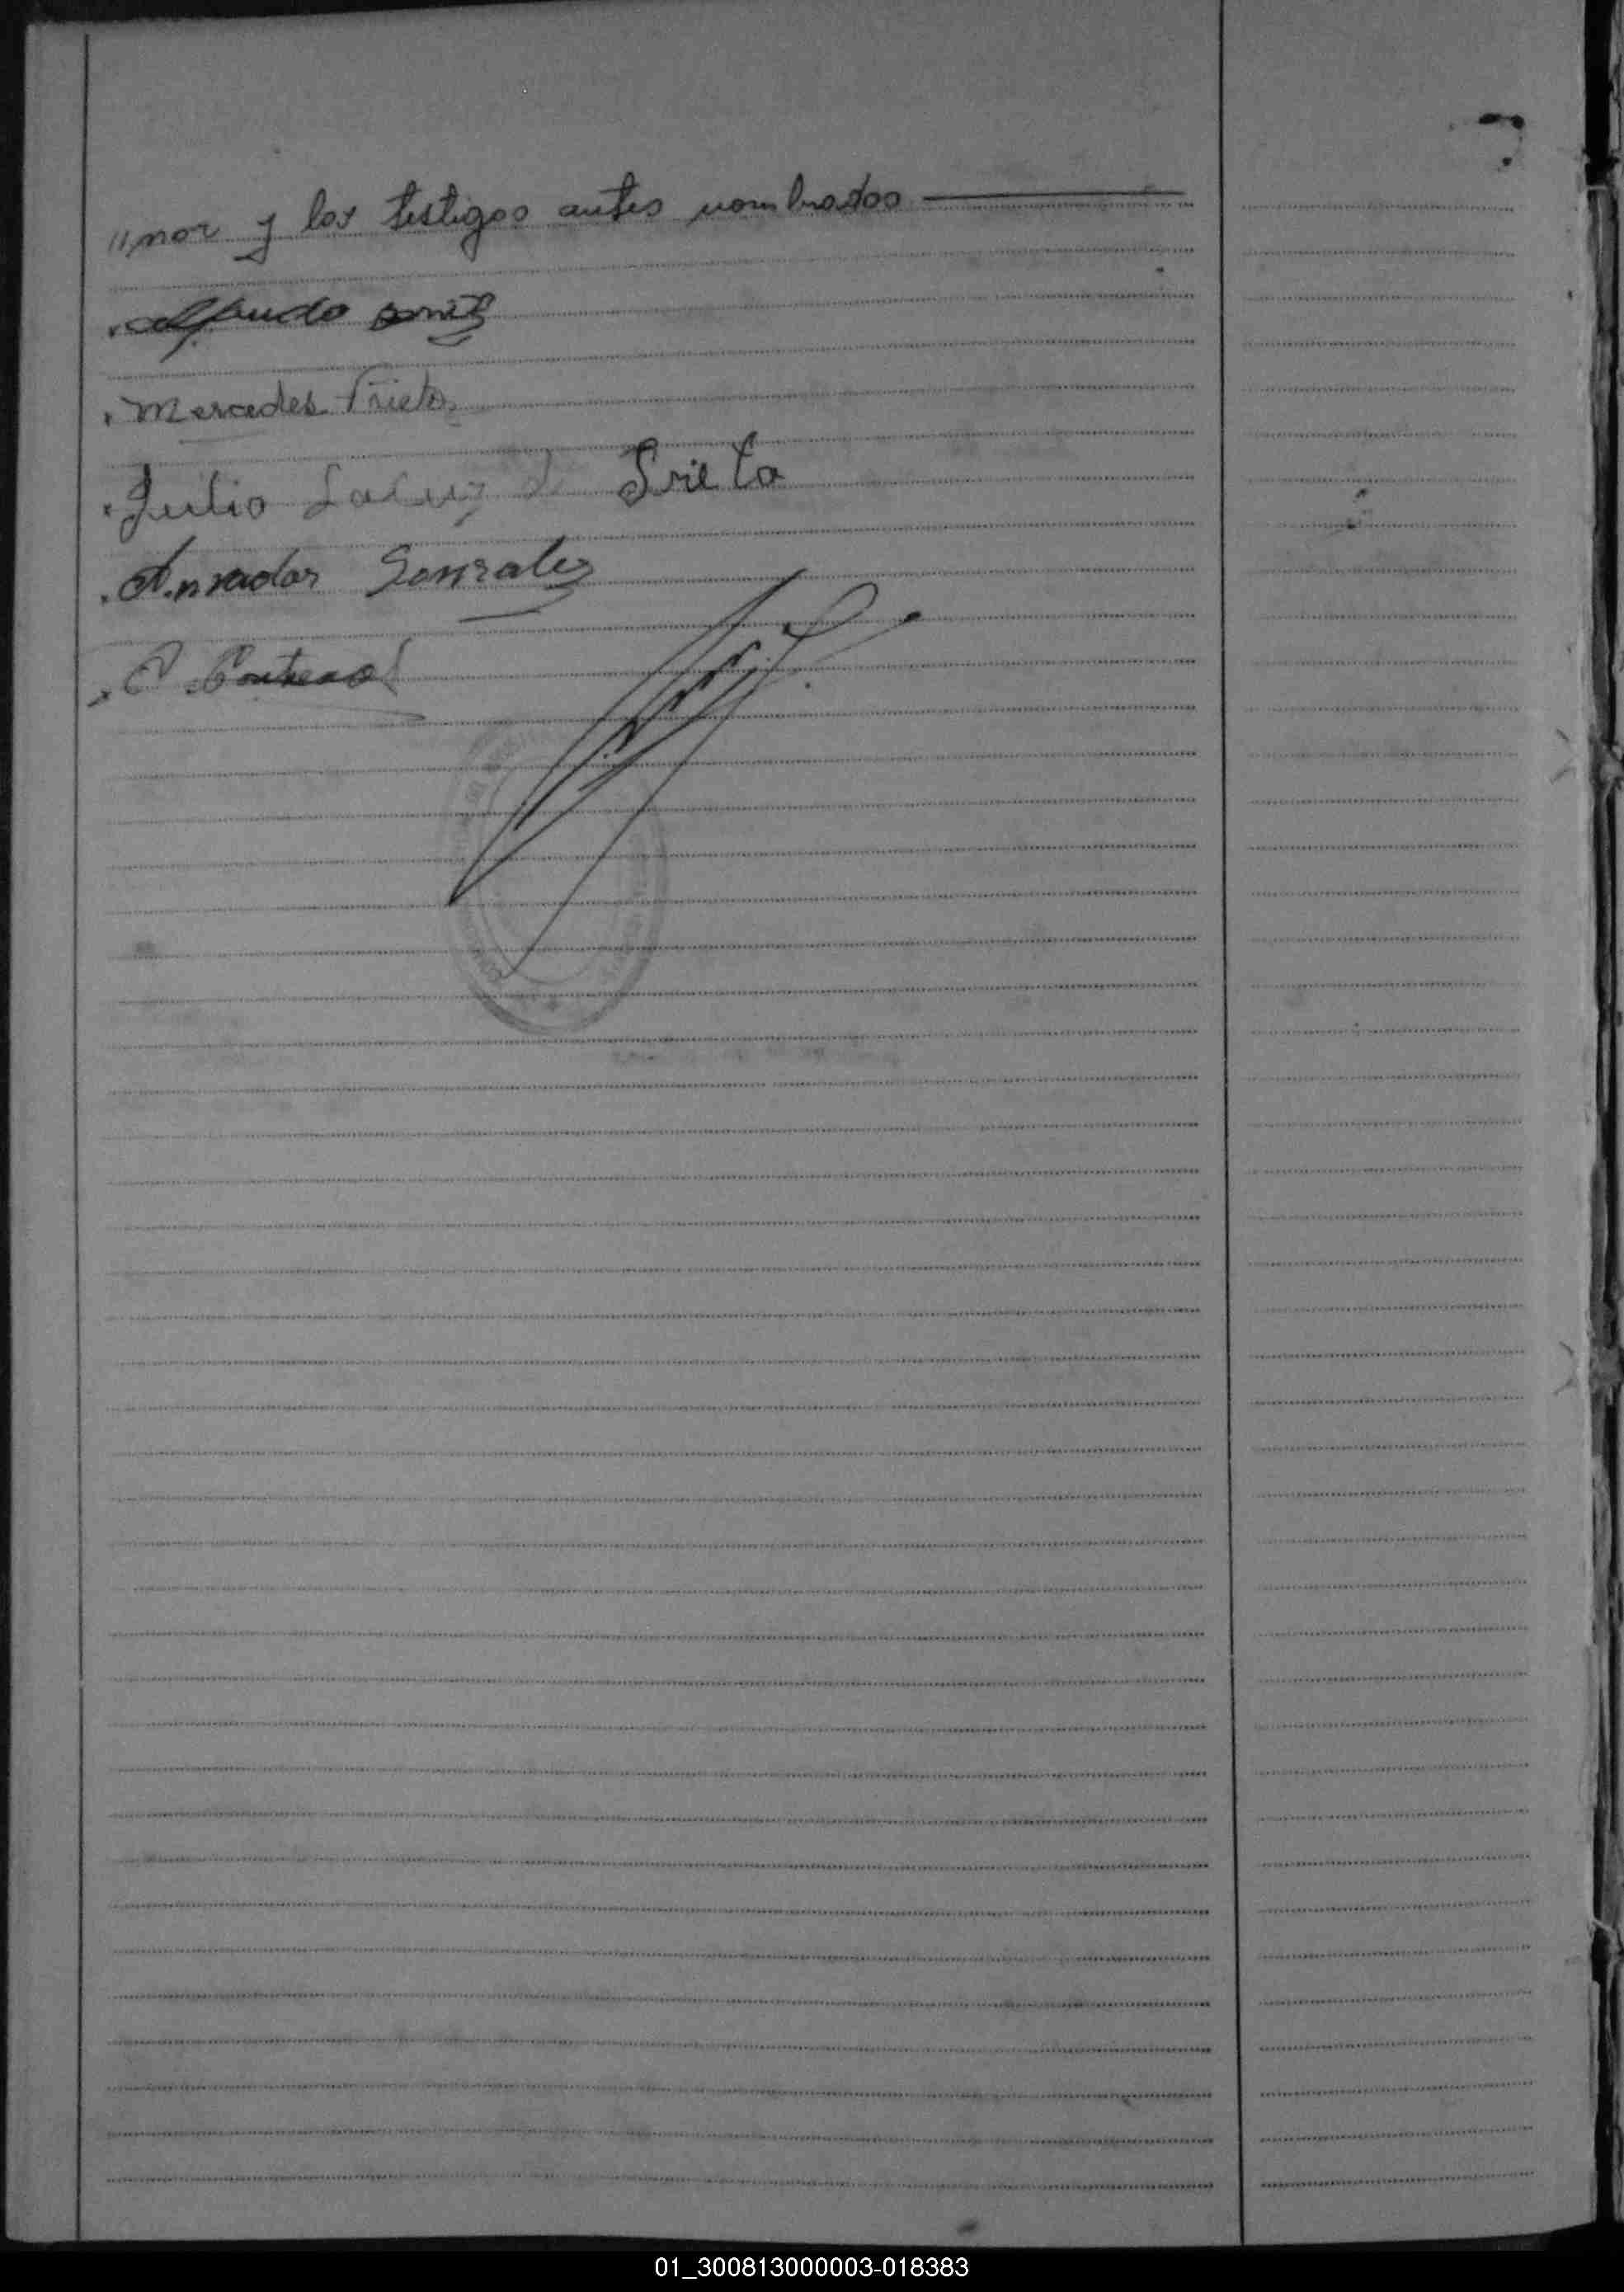 "nor y los testigos antes nombrados
Alfredo
Mercedes Prieto
Julio de Prieto
Amador Gonzalez
C. Contreras
01_300813000003-018383